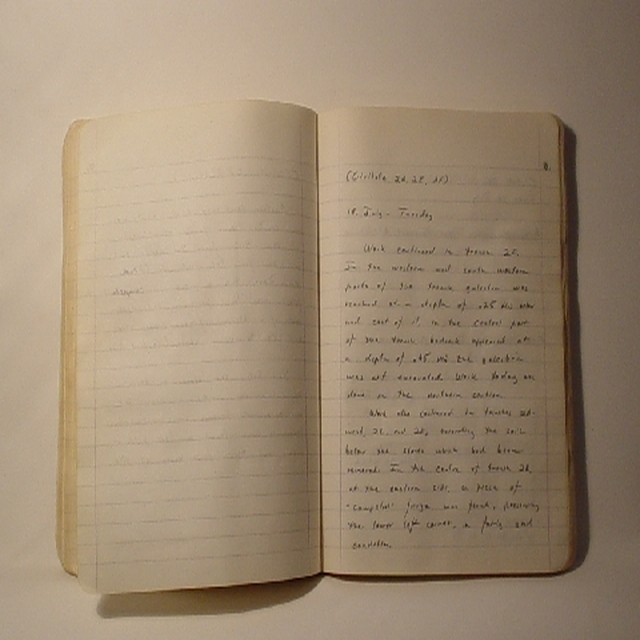 8.
18. July - Tuesday
Work continued in trench 2E.
In the western and south western
parts of the trench
reached at a depth of .25
and east of it, in the central part
of the trench bedrock appeared at
a depth of .45
was not excavated. Work today was
done in the northern section.
Work also continued in trenches
west, 2E and 2D, removing the soil
below the stones which had been
removed. In the center of trench 2D,
at the eastern side, a piece of
"Campana" frieze was found, preserving
the lower left corner, in fairly good
condition.